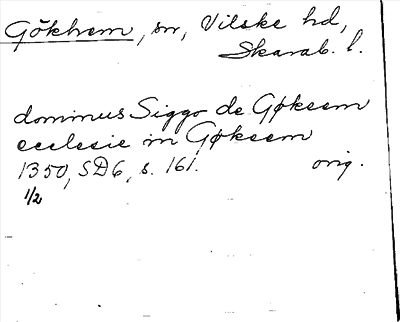 Gökhem, sn, Vilske hd,
Skarab. l.
dominus Siggo de Gøkeem
ecclesie in Gøkeem
1350, SD6, s. 161. orig.
1/2